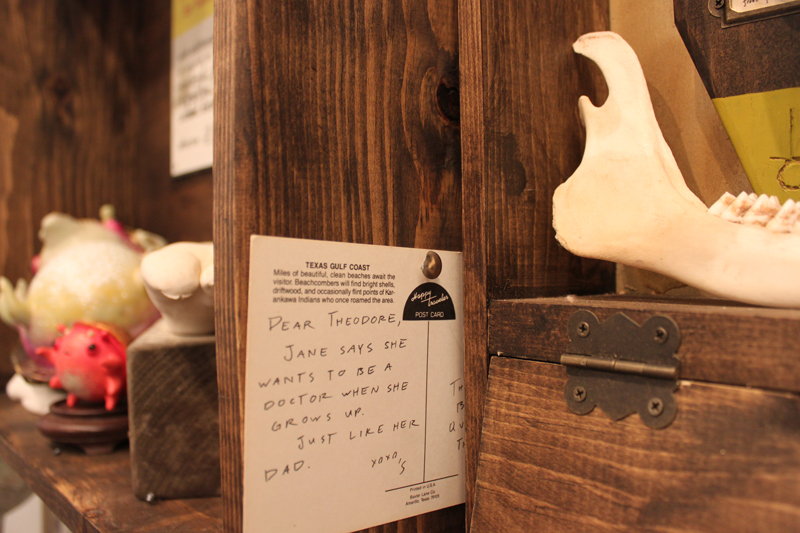 TEXAS GULF COAST
Miles of beautiful, clean beaches await the
visitor. Beachcombers will find bright shells,
driftwood, and occasionally flint points of Kar-
ankawa Indians who once roamed the area.
Happy
Traveler
POST CARD
DEAR THEODORE,
JANE SAYS SHE
WANTS TO BE A
DOCTOR WHEN SHE
GROWS UP.
JUST LIKE HER
DAD.
XOXO,
S
TH
Printed in U.S.A.
Baxter Lane Co.
Amarillo, Texas